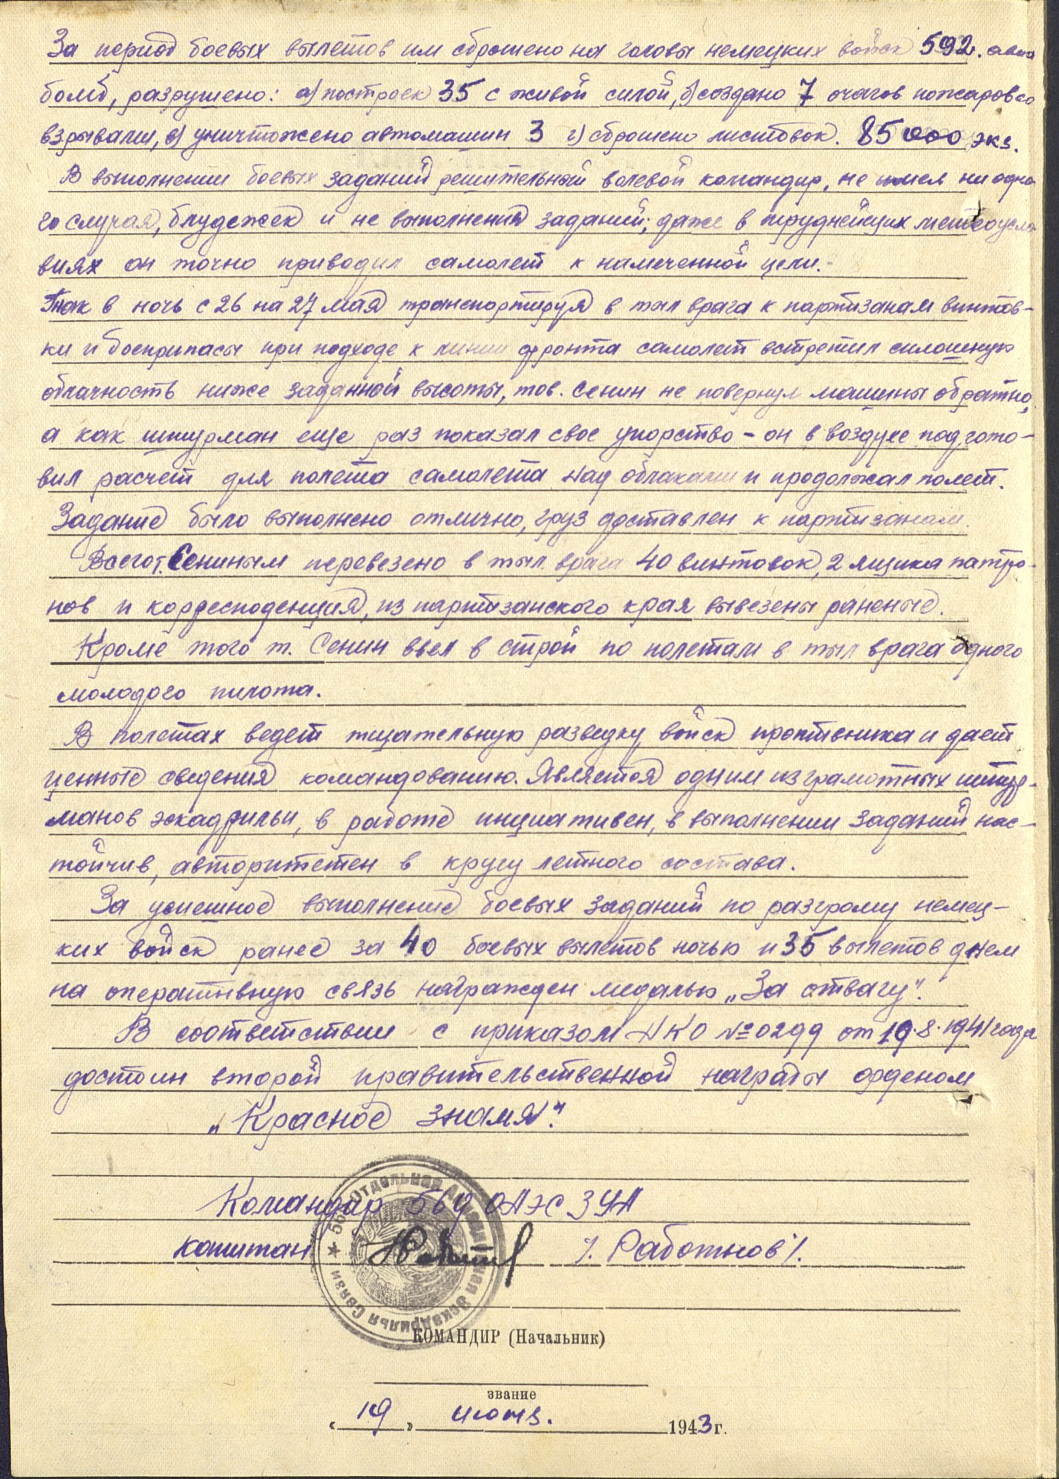 За период боевых вылетов им сброшено на головы немецких войск 592. авиа
бомб, разрушено: а) построек 35 с живой силой, б) создано 7 очагов пожаров со
взрывами, в) уничтожено автомашин 3 г) сброшено листовок. 85000 экз.
В выполнении боевых заданий решительный волевой командир, не имел ни одно-
го случая, блудежек и не выполнения заданий; даже в труднейших метеоусло-
виях он точно приводил самолет к намеченной цели.-
Так в ночь с 26 на 27 мая транспортируя в тыл врага к партизанам винтов-
ки и боеприпасы при подходе к линии фронта самолет встретил сплошную
облачность ниже заданной высоты, тов. Сенин не повернул машины обратно,
а как штурман еще раз показал свое упорство - он в воздухе подгото-
вил расчет для полета самолета над облаками и продолжал полет.
Задание было выполнено отлично, груз доставлен к партизанам.
Всего т. Сениным перевезено в тыл врага 40 винтовок, 2 ящика патро-
нов и корреспонденция, из партизанского края вывезены раненые.
Кроме того т. Сенин ввел в строй по полетам в тыл врага одного
молодого пилота.
В полетах ведет тщательную разведку войск противника и дает
ценные сведения командованию. Является одним из грамотных штур-
манов эскадрильи, в работе инициативен, в выполнении заданий нас-
тойчив, авторитетен в кругу летного состава.
За успешное выполнение боевых заданий по разгрому немец-
ких войск ранее за 40 боевых вылетов ночью и 35 вылетов днем
на оперативную связь награжден медалью „За отвагу".
В соответствии с приказом НКО № 0299 от 19.8.1941 года
достоин второй правительственной награды орденом
„Красное знамя".
Командир 569 ОАЭС ЗУА
капитан /. Работнов /.
Отдельная Авиационная Эскадрилья Связи ★
КОМАНДИР (Начальник)
звание
« 19 » июня. 1943 г.